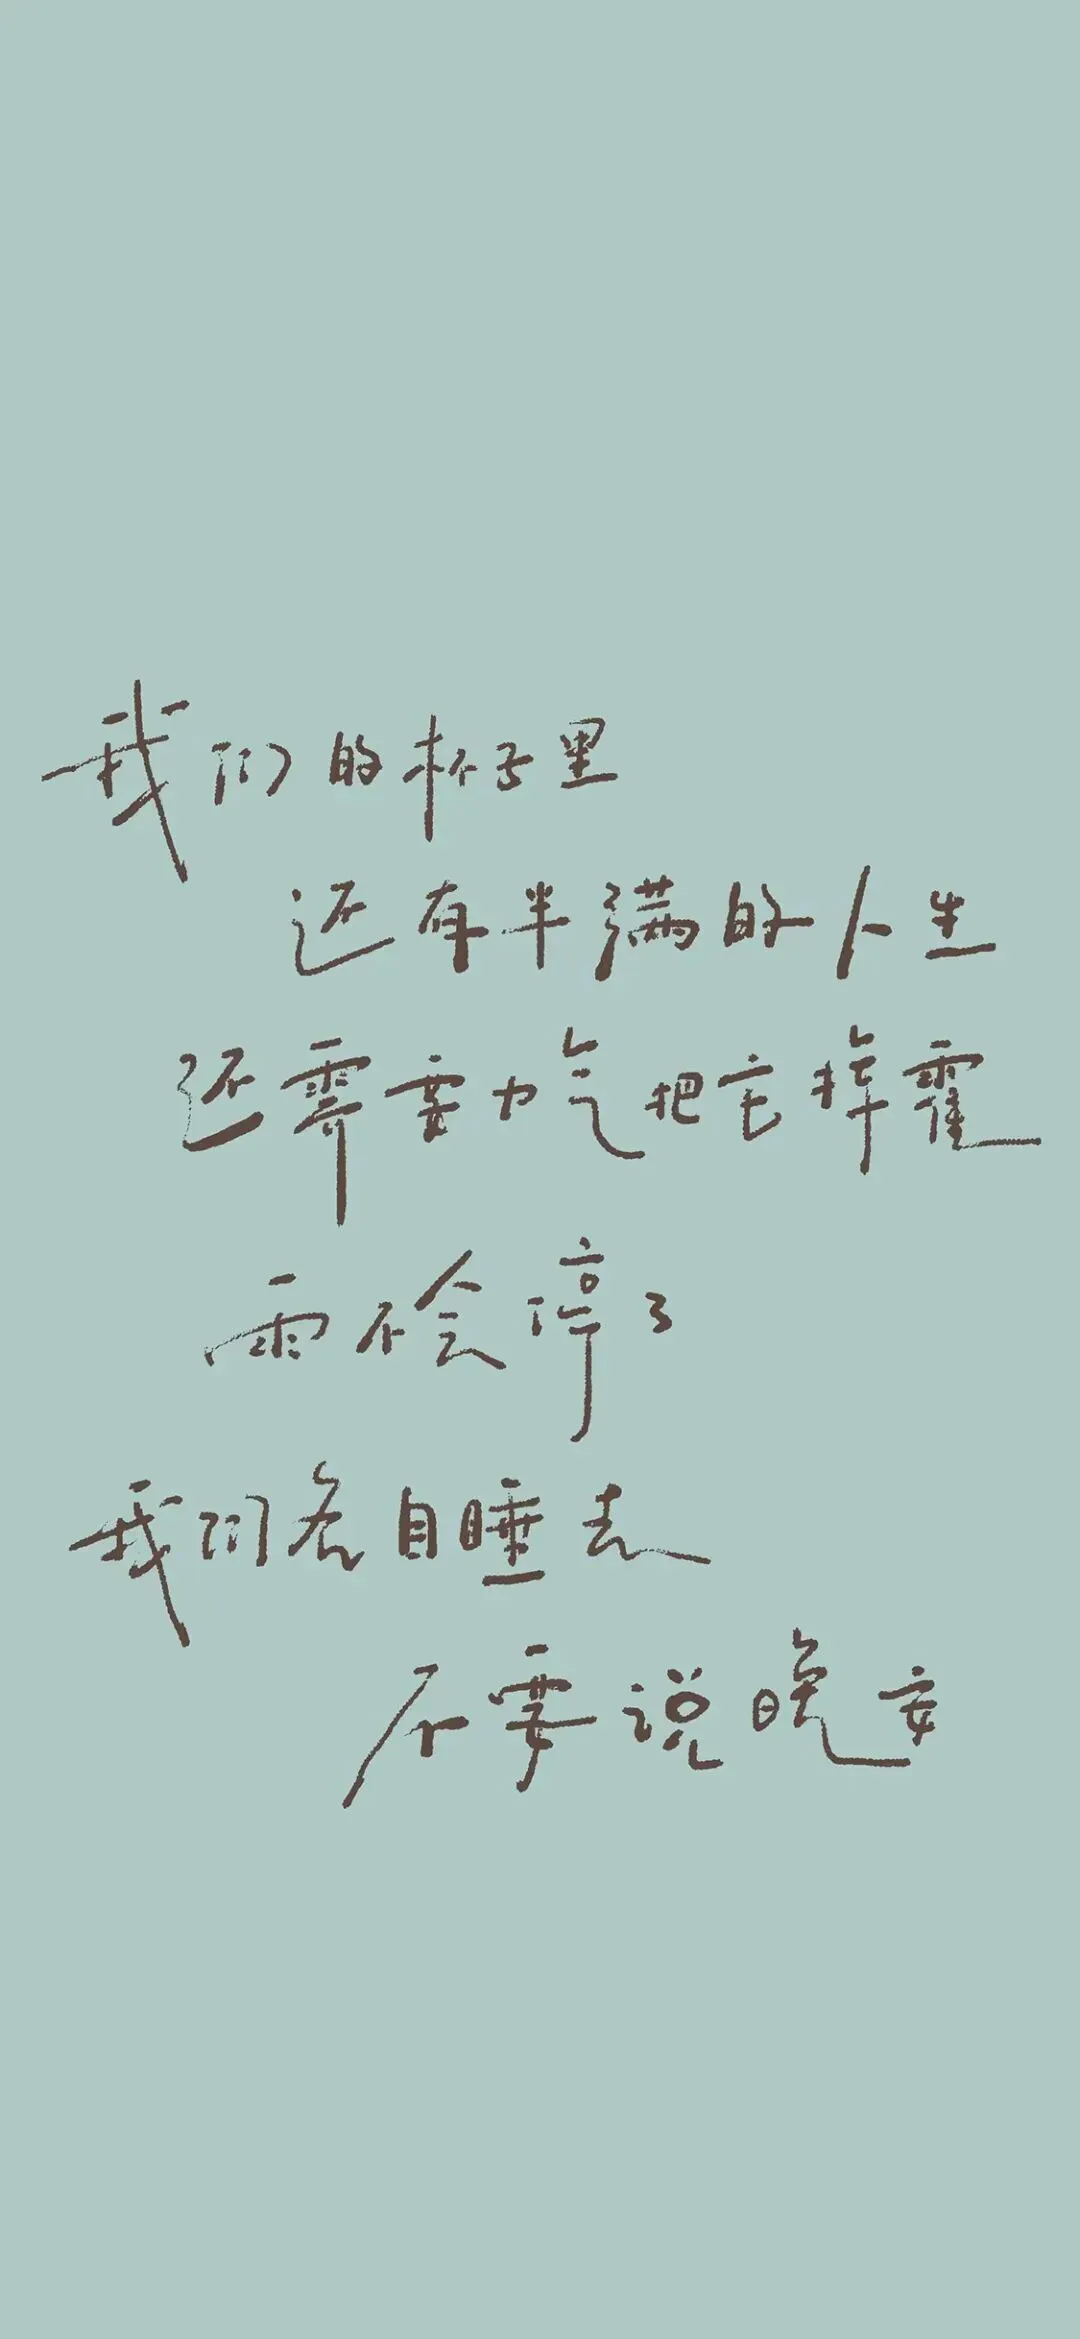 我们的杯子里
还有半满的人生
还需要力气把它挥霍
雨不会停了
我们各自睡去
不要说晚安